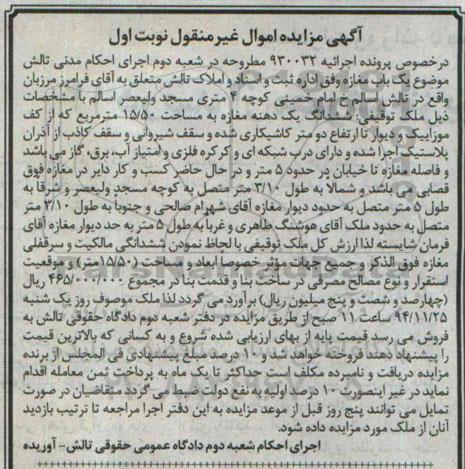 آگهی مزایده اموال غیرمنقول نوبت اول
درخصوص پرونده اجرائیه ۹۳۰۰۳۲ مطروحه در شعبه دوم اجرای احکام مدنی تالش
موضوع یک باب مغازه وفق اداره ثبت و اسناد و املاک تالش متعلق به آقای فرامرز مرزبان
واقع در تالش اسالم خ امام خمینی کوچه ۴ متری مسجد ولیعصر اسالم با مشخصات
ذیل ملک توقیفی: ششدانگ یک دهنه مغازه به مساحت ۱۵/۵۰ مترمربع که از کف
موزاییک و دیوار تا ارتفاع دو متر کاشیکاری شده و سقف شیروانی و سقف کاذب از آذران
پلاستیک اجرا شده و دارای درب شیشه ای و کرکره فلزی و امتیاز آب، برق، گاز می باشد
و فاصله مغازه تا خیابان در حدود ۵ متر و در حال حاضر کسب و کار دایر در مغازه فوق
قصابی می باشد و شمالا به طول ۳/۱۰ متر متصل به کوچه مسجد ولیعصر و شرقا به
طول ۵ متر متصل به حدود دیوار مغازه آقای شهرام صالحی و جنوبا به طول ۳/۱۰ متر
متصل به حدود ملک آقای هوشنگ طاهری و غربا به طول ۵ متر به حد دیوار مغازه آقای
فرمان شایسته لذا ارزش کل ملک توقیفی با لحاظ نمودن ششدانگی مالکیت و سرقفلی
مغازه فوق الذکر و جمیع جهات مؤثر خصوصا ابعاد و مساحت (۱۵/۵۰متر) و موقعیت
استقرار و نوع مصالح مصرفی در ساخت بنا و قدمت بنا در مجموع ۴۶۵/۰۰۰/۰۰۰ ریال
(چهارصد و شصت و پنج میلیون ریال) برآورد می گردد لذا ملک موصوف روز یک شنبه
۹۴/۱۱/۲۵ ساعت ۱۱ صبح از طریق مزایده در دفتر شعبه دوم دادگاه حقوقی تالش به
فروش می رسد قیمت پایه از بهای ارزیابی شده شروع و به کسانی که بالاترین قیمت
را پیشنهاد دهند فروخته خواهد شد و ۱۰ درصد مبلغ پیشنهادی فی المجلس از برنده
مزایده دریافت و نامبرده مکلف است حداکثر تا یک ماه به پرداخت ثمن معامله اقدام
نماید در غیر اینصورت ۱۰ درصد اولیه به نفع دولت ضبط می گردد متقاضیان در صورت
تمایل می توانند پنج روز قبل از موعد مزایده به این دفتر اجرا مراجعه تا ترتیب بازدید
آنان از ملک مورد مزایده داده شود.
اجرای احکام شعبه دوم دادگاه عمومی حقوقی تالش- آوریده